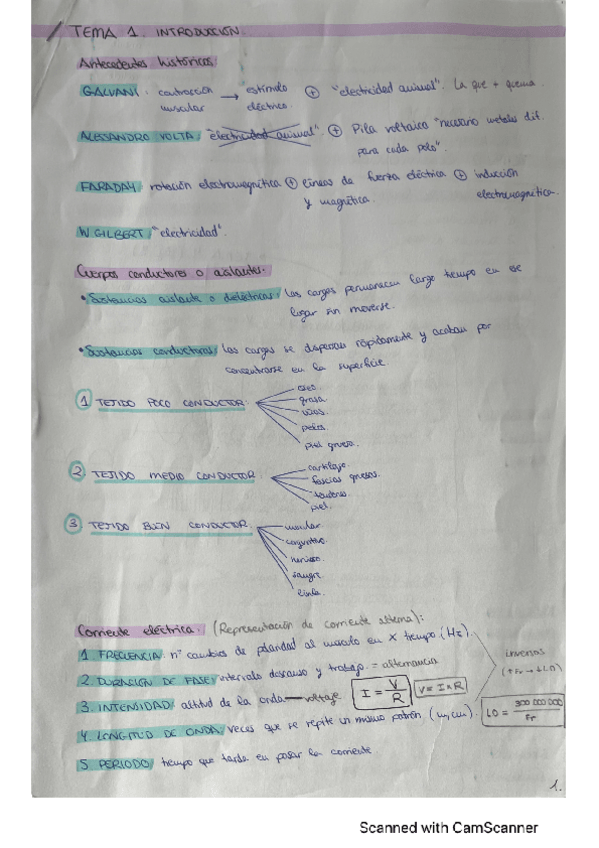 TEMA 1. INTRODUCCIÓN.
Antecedentes históricos:
GALVANI: contracción muscular → estímulo eléctrico. ⊕ "electricidad animal". La que + quema.
ALESSANDRO VOLTA: "electricidad animal". ⊕ Pila voltaica "necesario metales dif.
para cada polo".
FARADAY: rotación electromagnética ⊕ líneas de fuerza eléctrica ⊕ inducción
y magnética. electromagnética.
W. GILBERT: "electricidad".
Cuerpos conductores o aislantes.
• Sustancias aislante o dieléctricas: las cargas permanecen largo tiempo en ese
lugar sin moverse.
• Sustancias conductoras: las cargas se dispersan rápidamente y acaban por
concentrarse en la superficie.
1 TEJIDO POCO CONDUCTOR
hueso.
grasa.
uñas.
pelos.
piel gruesa.
2 TEJIDO MEDIO CONDUCTOR
cartílago.
fascias gruesas.
tendones.
piel.
3 TEJIDO BUEN CONDUCTOR
muscular.
conjuntivo.
nervioso.
sangre.
linfa.
Corriente eléctrica. (Representación de corriente alterna):
1. FRECUENCIA: nº cambios de polaridad al mundo en X tiempo. (Hz)
2. DURACIÓN DE FASE: intervalo descanso y trabajo. = alternancia
3. INTENSIDAD: altitud de la onda — voltaje I = V/R V = I × R
4. LONGITUD DE ONDA: veces que se repite un mismo patrón (m, cm).
inversos
(↑Fr → ↓LO)
LO = 300 000 000 / Fr
5. PERIODO: tiempo que tarda en pasar la corriente.
1.
Scanned with CamScanner